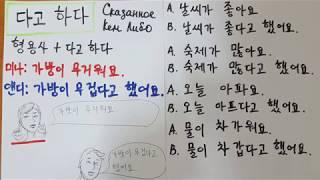 다고 하다
Сказанное
кем либо
형용사 + 다고 하다
미나: 가방이 무거워요.
앤디: 가방이 무겁다고 했어요.
가방이 무거워요
가방이 무겁다고
했어요.
A. 날씨가 좋아요.
B. 날씨가 좋다고 했어요.
A. 숙제가 많아요.
B. 숙제가 많다고 했어요.
A. 오늘 아파요.
B. 오늘 아프다고 했어요.
A. 물이 차가워요.
B. 물이 차갑다고 했어요.